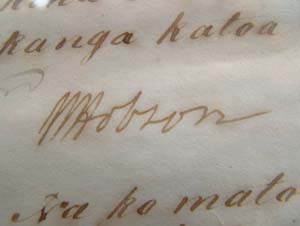 kanga katoa
WHobson
Na ko mato